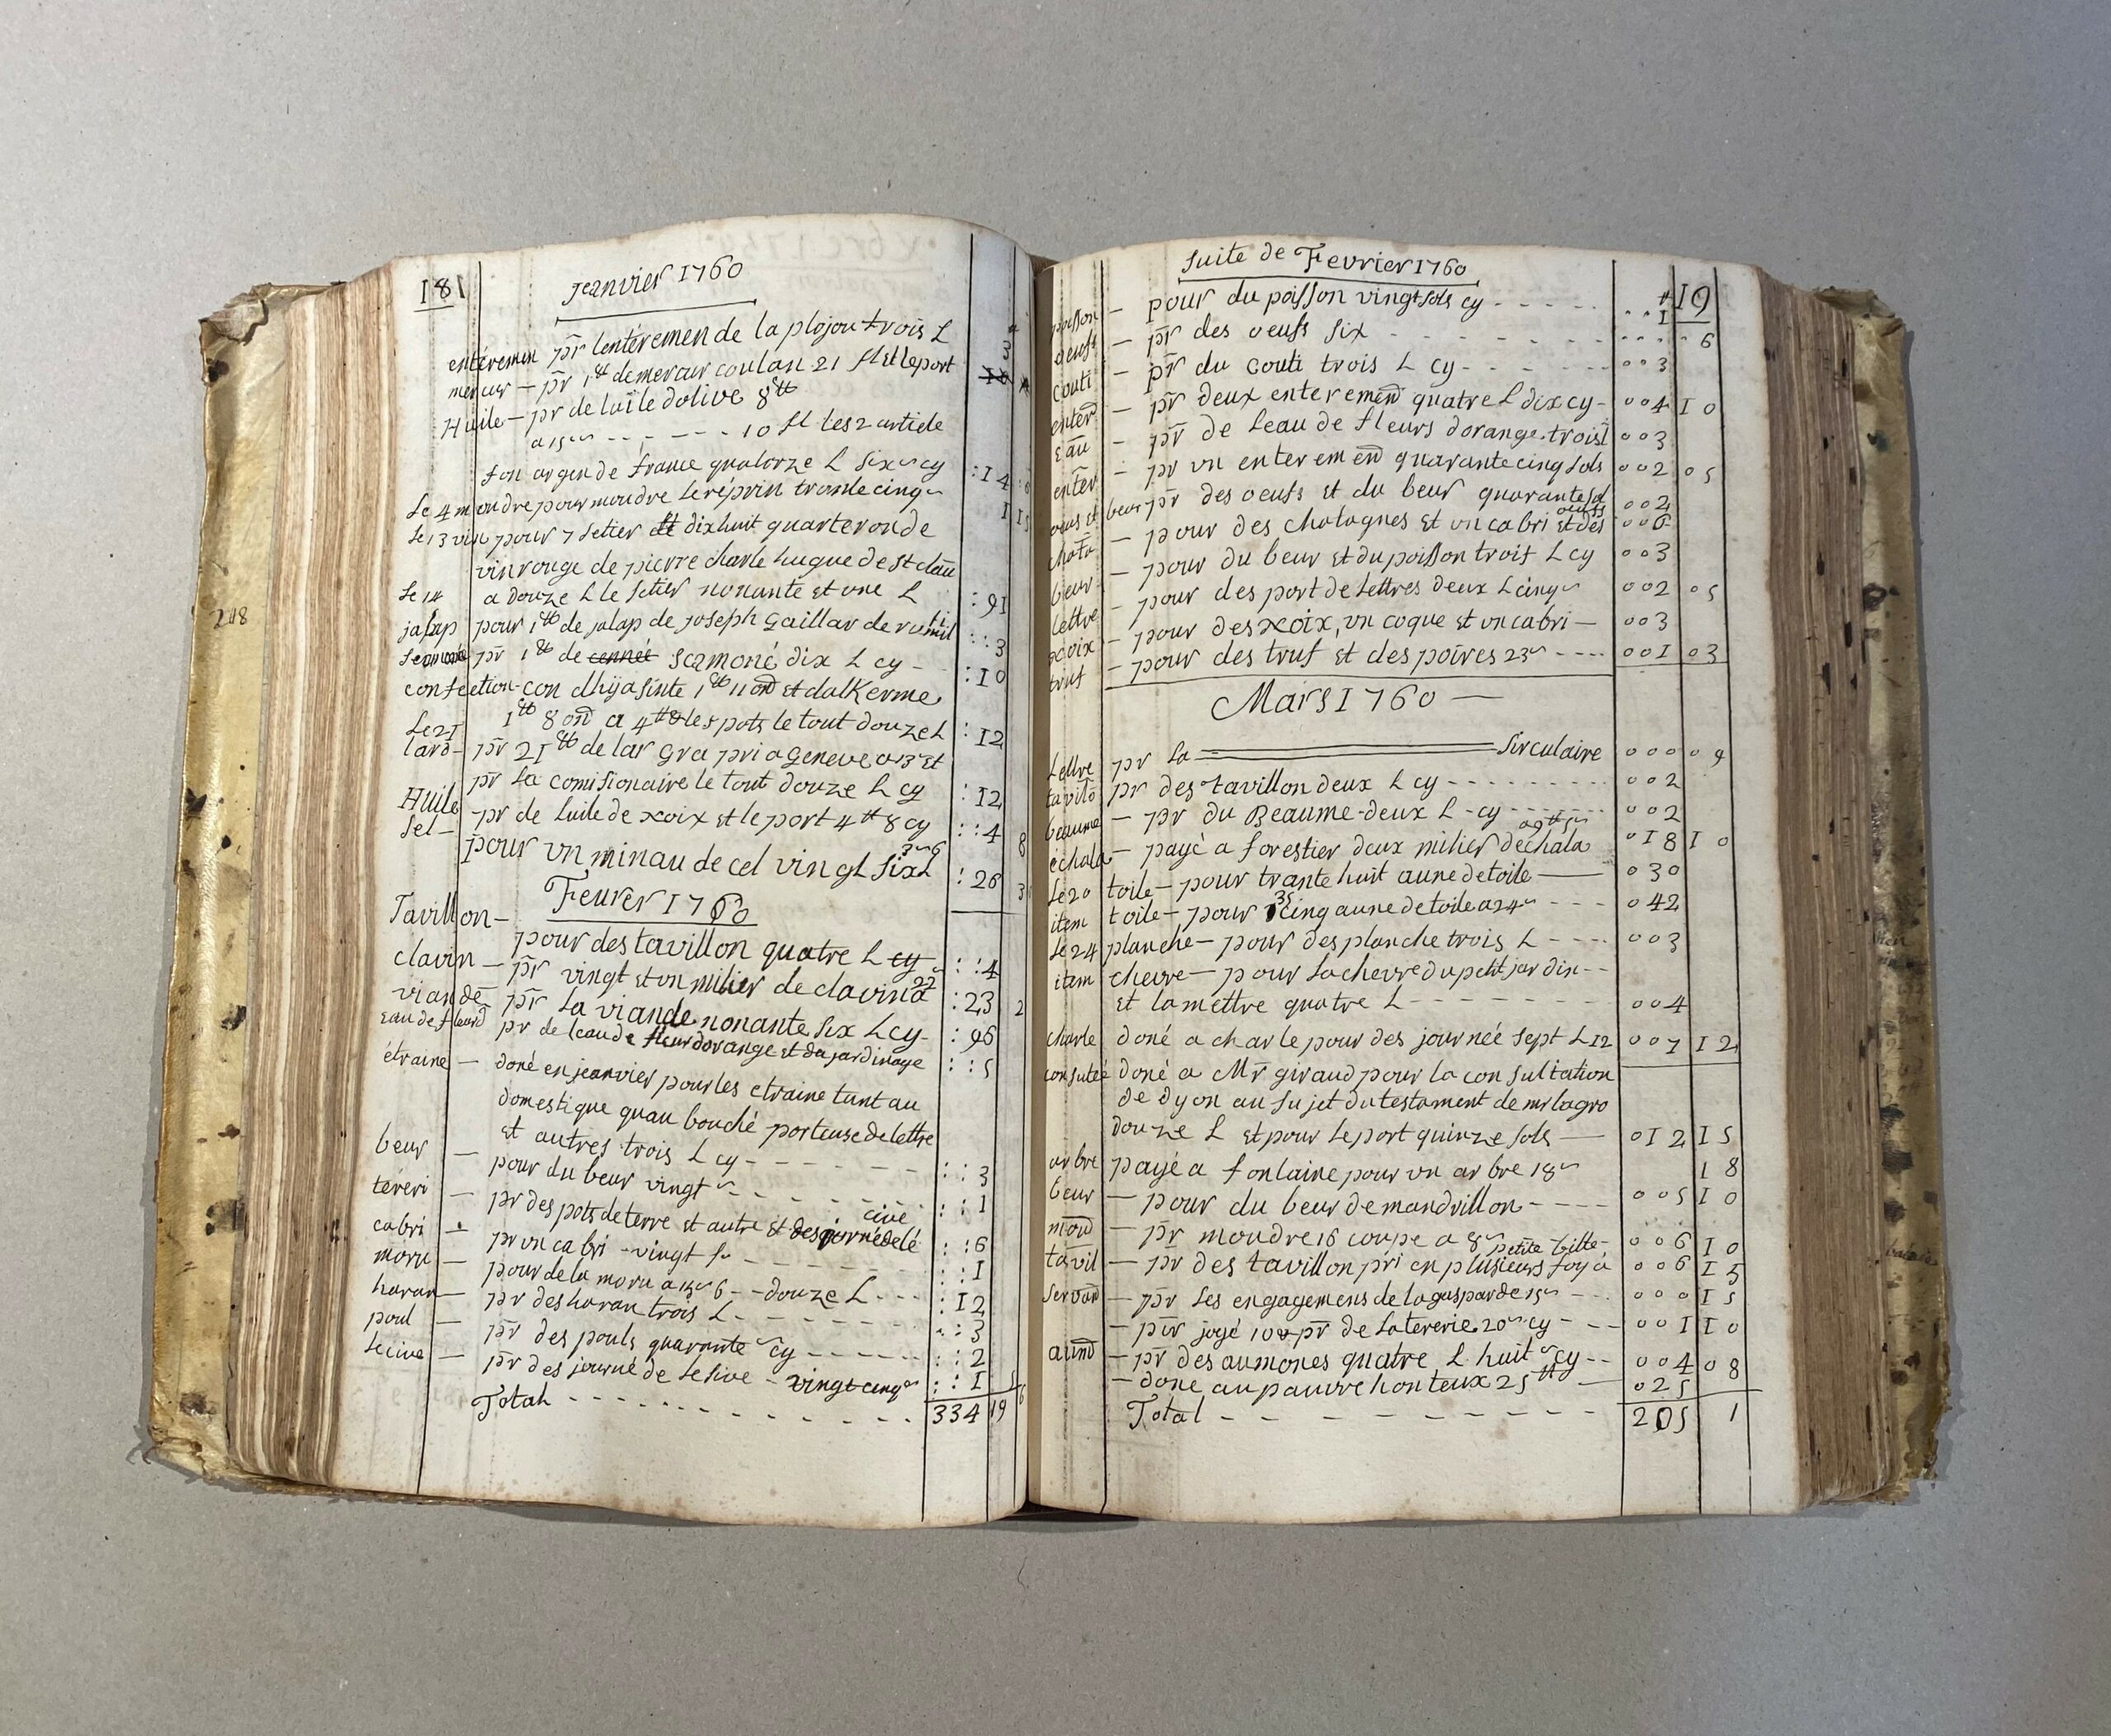 181
Jeanvier 1760
enteremen pr lenteremen de la plojou trois L 3
mercur — pr 1 tt de mercur coulan 21 fl et le port
Huile — pr de luile dolive 8 tt
a 15 s - - - - - - 10 fl les 2 article
fon argen de france quatorze L six s cy :14
Le 4 moudre pour moudre le réprin trante cinq s 1 15
le 13 vin pour 7 setier et dix huit quarteron de
vin rouge de pierre charle hugue de st
a douze L le setier nonante et une L :91
Le 14
jalap pour 1 tt de jalap de joseph Gaillar de ::3
pr 1 tt de cennée scamoné dix L cy - :10
confection - con dhijasinte 1 tt 11 on et dalKerme
1 tt 8 on a 4 tt les pots le tout douze L :12
Le 21
lard - pr 21 tt de lar Gra pri a Geneve a 13 et
pr la comisionaire le tout douze L cy :12
Huile - pr de luile de xoix et le port 4 tt 8 cy ::4 8
sel — pour un minau de cel vingt six L 3 s 6 :26 3
Feurer 1760
Tavillon — pour des tavillon quatre L cy ::4
clavin — pr vingt et un milier de clavin a 22 s :23 2
viande pr la viande nonante six L cy - :96
eau de fleurd pr de leau de fleur dorange et du jardinage ::5
étraine — doné en jeanvier pour les etraine tant au
domestique quau bouché porteuse de lettre
et autres trois L cy - - - - - - - ::3
beur — pour du beur vingt s - - - - - - ::1
téreri — pr des pots de terre et autre et des journé de lé cive ::6
cabri — pr un cabri - vingt s - - - - - - ::1
moru — pour de la moru a 13 s 6 - - douze L - - - :12
haran — pr des haran trois L - - - - - - - ::3
poul — pr des pouls quarante s cy - - - - - - ::2
lecive — pr des journé de lesive - vingt cinq s ::1 5
Total - - - - - - - - - - - 334 19 6
19
suite de Feurier 1760
poisson — pour du poisson vingt sols cy - - - - ..1
oeufs — pr des oeufs six - - - - - - - - .... 6
couti — pr du couti trois L cy - - - - - - 003
enter — pr deux enteremen quatre L dix cy - 004 10
eau — pr de leau de fleurs dorange trois L 003
enter — pr un enteremen quarante cinq sols 002 05
oeus et beur pr des oeufs et du beur quarante sol 002
chata — pour des chatagnes et un cabri et des oeufs 006
beur — pour du beur et du poisson trois L cy 003
lettre — pour des port de lettres deux L cinq s 002 05
xoix — pour des xoix, un coque et un cabri — 003
truf — pour des truf et des poires 23 s - - - - 001 03
Mars 1760 —
Lettre pr la ———— sirculaire 000 09
tavilo pr des tavillon deux L cy - - - - - - - - 002
beaume — pr du Beaume - deux L - cy - - - - - 002
échala — payé a forestier deux milier déchala a 9 tt 5 s 018 10
Le 20 toile — pour trante huit aune de toile —— 030
item toile — pour 35 cinq aune de toile a 24 s - - - 042
Le 24 planche — pour des planche trois L - - - - 003
item chevre — pour la chevre du petit jardin - -
et la mettre quatre L - - - - - - - - 004
charle doné a charle pour des journéé sept L 12 007 12
doné a Mr giraud pour la consultation
de dyon au sujet du testament de mr lagro
douze L et pour le port quinze sols — 012 15
arbre payé a fontaine pour un arbre 18 s 18
beur — pour du beur de mandrillon - - - - 005 10
moud — pr moudre 16 coupe a 8 s 006 10
tavil — pr des tavillon pri en plusieurs foy a petite bille - 006 15
Servan — pr les engagemens de la gasparde 15 s - - - 000 15
— pr joyé pr de la tererie 20 s cy - - - 001 10
aumo — pr des aumones quatre L huit s cy - - 004 08
— doné au pauvre honteux 25 tt — 025
Total - - - - - - - - - 205 1